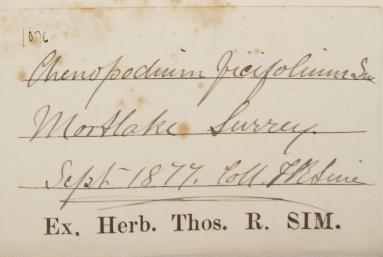 1076
Chenopodium ficifolium Sm
Mortlake Surrey.
Sept 1877. Coll. TR Sim
Ex. Herb. Thos. R. SIM.